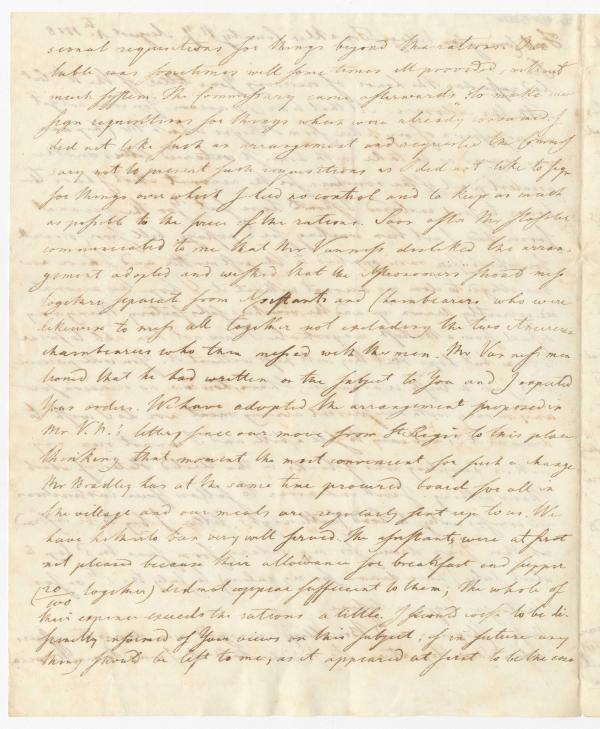 sional requisitions for things beyond the rations. Our
table was sometimes well some times ill provided, without
much system. The Commissary came afterwards to make me
sign requisitions for things which were already consumed. I
did not like such an arrangement and requested the Commis
sary not to present such requisitions as I did not like to sign
for things over which I had no control and to keep as much
as possible to the price of the rations. Soon after Mr Hassler
communicated to me that Mr Vanness disliked the arran-
gement adopted and wished that the Astronomers should mess
together separate from Assistants and Chainbearers who were
likewise to mess all together not excluding the two American
chainbearers who then messed with the men. Mr Van Ness men
tioned that he had written on the subject to You and I expected
Your orders. We have adopted the arrangement proposed in
Mr V. N.'s letter, since our move from St Regis to this place
thinking that moment the most convenient for such a change
Mr Bradley has at the same time procured board for all in
the village and our meals are regularly sent up to us. We
have hitherto been very well served. The assistants were at first
not pleased because their allowance for breakfast and supper
(20/100 together) did not appear sufficient to them; the whole of
their expence exceeds the rations a little. I should wish to be di-
stinctly informed of Your views on this subject, if in future any
thing should be left to me, as it appeared at first to be the case